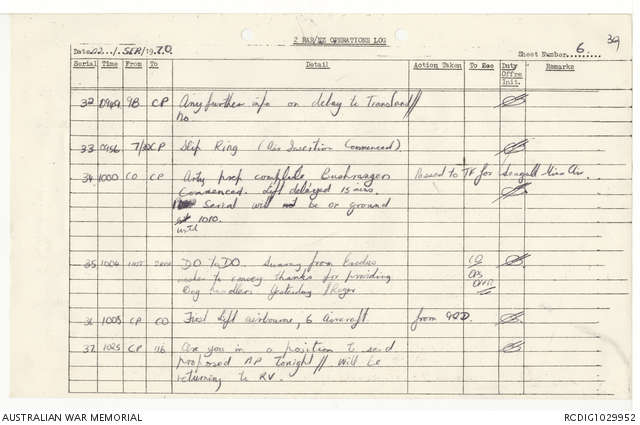 39
2 RAR/NZ OPERATIONS LOG
Date 02 / SEP / 1970
Sheet Number 6
Serial Time From To Detail Action Taken To See Duty Offre Init. Remarks
32 0949 9B CP Any further info on delay to Transland //
No
33 0956 CP Slip Ring (Air Insertion Commenced).
34 1000 CO CP Arty prep complete, Bushranger Passed to TF for Seagull
Commenced. Lift delayed 15 mins.
Serial will be on ground
until 1010.
35 DO to DO. from
to convey thanks for providing
handlers yesterday // Roger
36 1005 CP CO First lift airbourne, 6 Aircraft from
37 1025 CP Are you in a position to send
proposed AP tonight // Will be
returning to RV.
AUSTRALIAN WAR MEMORIAL
RCDIG1029952